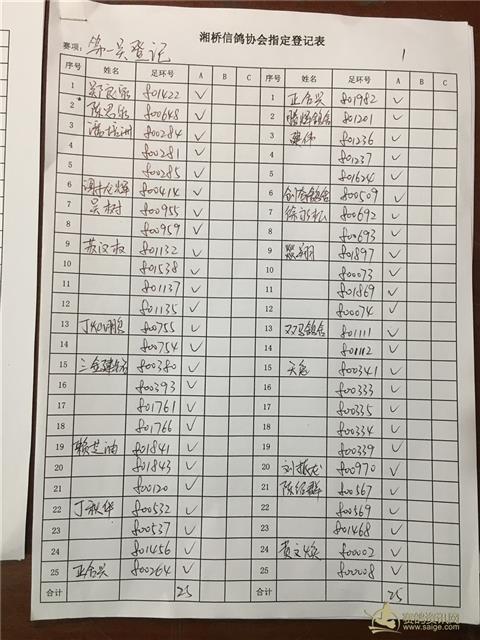 湘桥信鸽协会指定登记表
赛项: 第一关登记 1
序号 姓名 足环号 A B C 序号 姓名 足环号 A B C
1 801422 ✓ 1 正合兴 801982 ✓
2 陈思乐 800648 ✓ 2 801201 ✓
3 800284 ✓ 3 801236 ✓
4 800281 ✓ 4 801237 ✓
5 800285 ✓ 5 801624 ✓
6 800414 ✓ 6 800509 ✓
7 吴树 800955 ✓ 7 800692 ✓
8 800959 ✓ 8 800693 ✓
9 苏汉权 801132 ✓ 9 801897 ✓
10 801538 ✓ 10 800073 ✓
11 801137 ✓ 11 801869 ✓
12 801135 ✓ 12 800074 ✓
13 800755 ✓ 13 双马鸽舍 801111 ✓
14 800754 ✓ 14 801112 ✓
15 800380 ✓ 15 800341 ✓
16 800393 ✓ 16 800333 ✓
17 801761 ✓ 17 800335 ✓
18 801766 ✓ 18 800334 ✓
19 801841 ✓ 19 800339 ✓
20 801843 ✓ 20 刘振龙 800970 ✓
21 800120 ✓ 21 陈绍群 800567 ✓
22 丁秋华 800532 ✓ 22 800569 ✓
23 800537 ✓ 23 801468 ✓
24 801456 ✓ 24 黄文焕 800002 ✓
25 正合兴 800264 ✓ 25 800008 ✓
合计 25 合计 25
赛鸽资讯网
www.saige.com